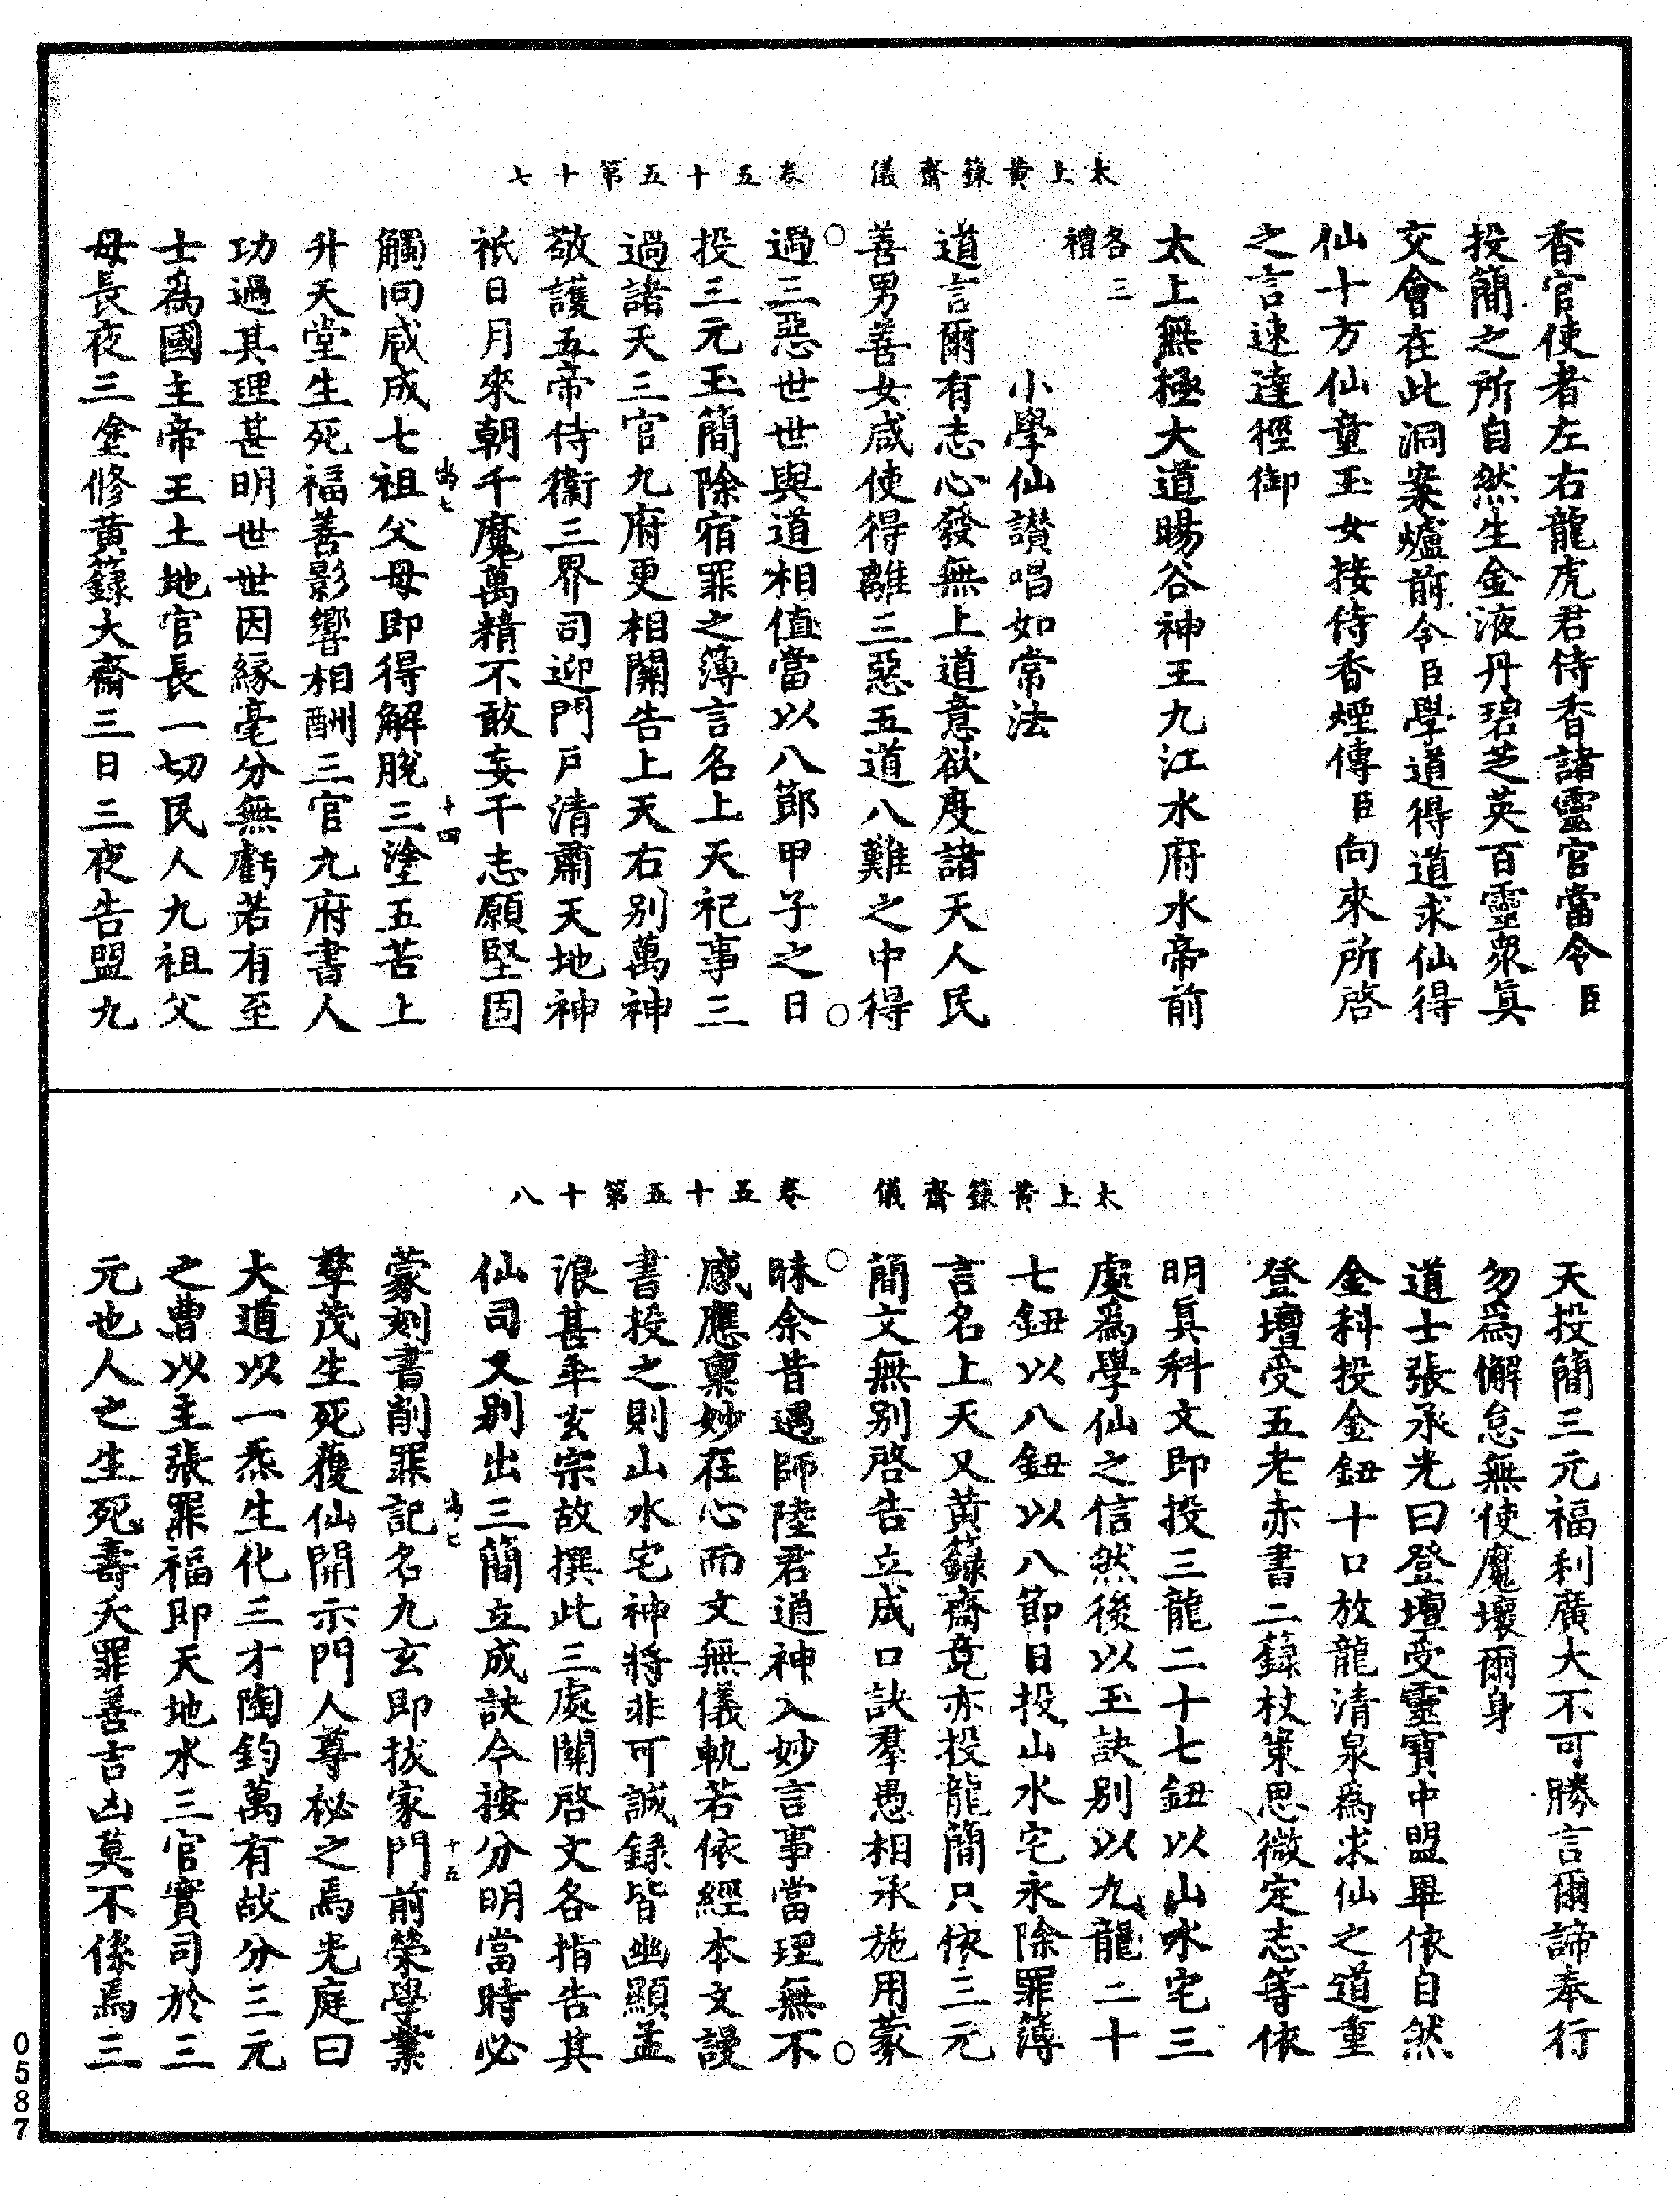 太上黃籙齋儀　卷五十五第十七
香官使者左右龍虎君侍香諸靈官當令臣
投簡之所自然生金液丹碧芝英百靈衆眞
交會在此洞案爐前令臣學道得道求仙得
仙十方仙童玉女接侍香煙傳臣向來所啓
之言速達徑御
太上無極大道暘谷神王九江水府水帝前
各三
禮
小學仙讃唱如常法
道言爾有志心發無上道意欲度諸天人民
善男善女咸使得離三惡五道八難之中得
過三惡世世與道相值當以八節甲子之日
投三元玉簡除宿罪之簿言名上天祀事三
過諸天三官九府更相關告上天右別萬神
敬護五帝侍衞三界司迎門戶清肅天地神
祇日月來朝千魔萬精不敢妄干志願堅固
觸向咸成七祖父母即得解脫三塗五苦上
升天堂生死福善影響相酬三官九府書人
功過其理甚明世世因緣毫分無虧若有至
士爲國主帝王土地官長一切民人九祖父
母長夜三塗修黃籙大齋三日三夜告盟九
十四
太上黃籙齋儀　卷五十五第十八
天投簡三元福利廣大不可勝言爾諦奉行
勿爲懈怠無使魔壞爾身
道士張承先曰登壇受靈寶中盟畢依自然
金科投金鈕十口放龍清泉爲求仙之道重
登壇受五老赤書二籙杖策思微定志等依
明眞科文即投三龍二十七鈕以山水宅三
處爲學仙之信然後以玉訣別以九龍二十
七鈕以八鈕以八節日投山水宅永除罪簿
言名上天又黃籙齋竟亦投龍簡只依三元
簡文無別啓告立成口訣羣愚相承施用蒙
昧余昔遇師陸君通神入妙言事當理無不
感應稟妙在心而文無儀軌若依經本文謾
書投之則山水宅神將非可誠録皆幽顯孟
浪甚年玄宗故撰此三處關啓文各指告其
仙司又別出三簡立成訣今按分明當時必
蒙刻書削罪記名九玄即拔家門前榮學業
孳茂生死獲仙開示門人尊祕之焉光庭曰
大道以一炁生化三才陶鈞萬有故分三元
之曹以主張罪福即天地水三官實司於三
元也人之生死壽夭罪善吉凶莫不係焉三
十五
0587